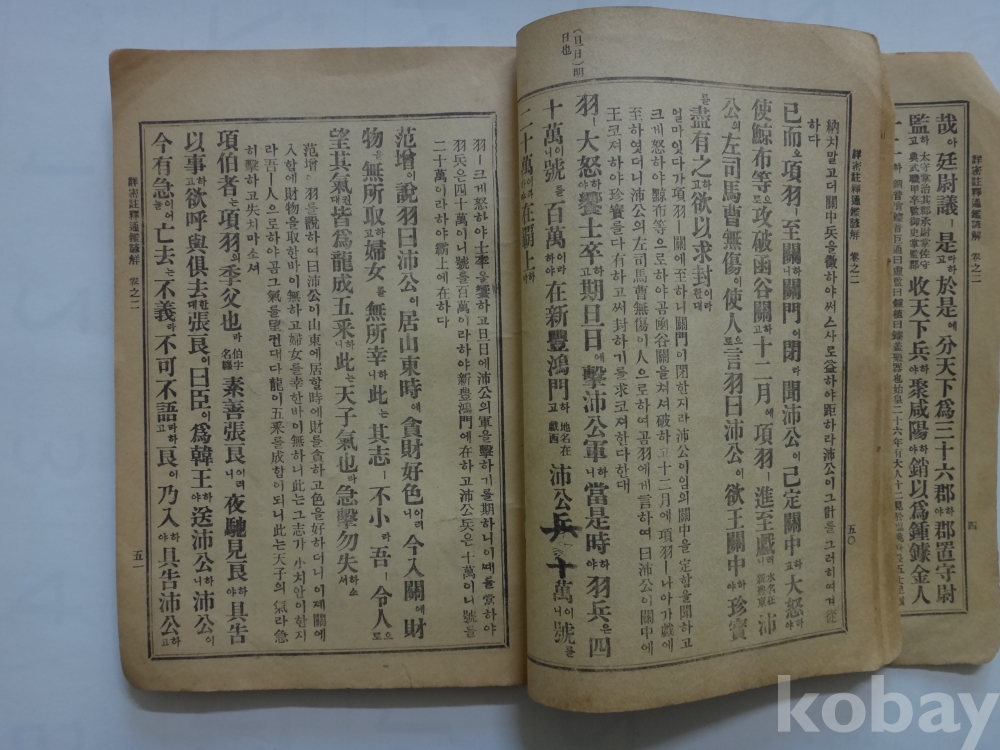 哉아廷尉議ㅣ是라하고於是에分天下爲三十六郡하야郡置守尉
監하고收天下兵하야聚咸陽하야銷以爲鍾鐻金人
四
(旦日)明日也
詳密註釋通鑑諺解 卷之二
五〇
納치말고더關中兵을徵하야써스사로益하야距하라沛公이그計를그러히여겨從
하다
已而오項羽ㅣ至關하니關門이閉라聞沛公이已定關中하고大怒하야
使鯨布等으로攻破函谷關하고十二月에項羽ㅣ進至戲러니沛
公의左司馬曹無傷이使人으로言羽曰沛公이欲王關中하야珍寶
를盡有之라하고欲以求封이한대
얼마잇다가項羽ㅣ關에至하니關門이閉한지라沛公이임의關中을定함을聞하고
크게怒하야鯨布等으로하야곰函谷關을쳐서破하고十二月에項羽ㅣ나아가戲에
至하엿더니沛公의左司馬曹無傷이人으로하여곰羽에게言하여曰沛公이關中에
王코져하야珍寶를다有하고써封하기를求코져한다한대
羽ㅣ大怒하야饗士卒하고期旦日에擊沛公軍하니當是時하야羽兵은四
十萬이니號를百萬이라하야在新豐鴻門하고地名在戲西沛公兵은十萬이니號를
二十萬이라하야在霸上하다
詳密註釋通鑑諺解 卷之二
五一
羽ㅣ크게怒하야士卒을饗하고旦日에沛公의軍을擊하기를期하니이때를當하야
羽兵은四十萬이니號를百萬이라하야新豊鴻門에在하고沛公兵은十萬이니號를
二十萬이라하야霸上에在하다
范增이說羽曰沛公이居山東時에貪財好色이러니今入關에財
物을無所取하고婦女를無所幸하니此는其志ㅣ不小라吾ㅣ令人으로
望其氣대皆爲龍成五采하니此는天子氣也라急擊勿失하소셔
范增이羽를說하여曰沛公이山東에居할時에財를貪하고色을好하더니이제關에
入함에財物을取한바이無하고婦女를幸한바이無하니此는그志가小치안이한지
라吾ㅣ人으로하야곰그氣를望컨대다龍이五采를成함이되니此는天子의氣라急
히擊하고失치마소셔
項伯者는項羽의季父也라伯字名纏素善張良이러니夜馳見良하야具告
以事하고欲呼與俱去한대張良이曰臣이爲韓王하야送沛公하니沛公이
今有急이어늘亡去는不義라不可不語라하고良이乃入하야具告沛公하고
kobay